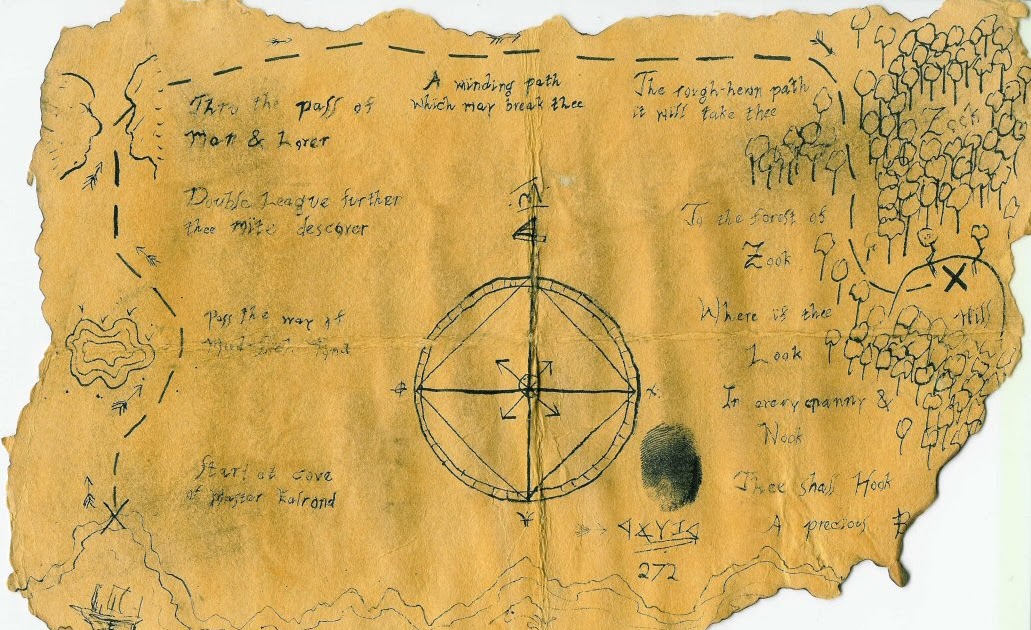 Thro the pass of
Man & Lover
Double League further
thee mite descover
Pass the way of
Start at cove
of Master Ealrond
X
A winding path
which may break thee
N
272
The rough-hewn path
it will take thee
Zook
To the forest of
Zook
X
Hill
Where is thee
Look
In every cranny &
Nook
Thee shall Hook
A precious